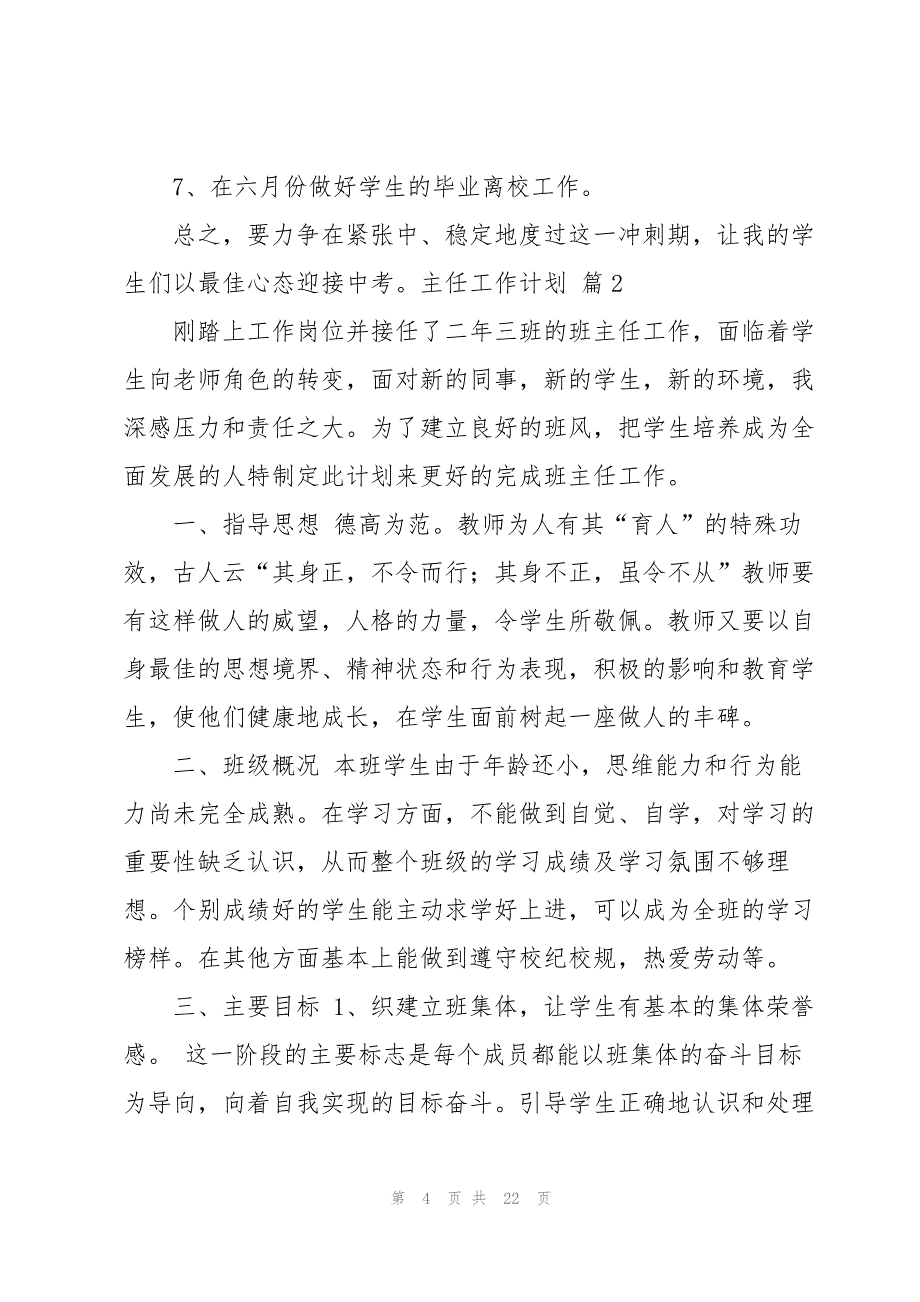 7、在六月份做好学生的毕业离校工作。
总之，要力争在紧张中、稳定地度过这一冲刺期，让我的学
生们以最佳心态迎接中考。主任工作计划 篇2
刚踏上工作岗位并接任了二年三班的班主任工作，面临着学
生向老师角色的转变，面对新的同事，新的学生，新的环境，我
深感压力和责任之大。为了建立良好的班风，把学生培养成为全
面发展的人特制定此计划来更好的完成班主任工作。
一、指导思想 德高为范。教师为人有其“育人”的特殊功
效，古人云“其身正，不令而行；其身不正，虽令不从”教师要
有这样做人的威望，人格的力量，令学生所敬佩。教师又要以自
身最佳的思想境界、精神状态和行为表现，积极的影响和教育学
生，使他们健康地成长，在学生面前树起一座做人的丰碑。
二、班级概况 本班学生由于年龄还小，思维能力和行为能
力尚未完全成熟。在学习方面，不能做到自觉、自学，对学习的
重要性缺乏认识，从而整个班级的学习成绩及学习氛围不够理
想。个别成绩好的学生能主动求学好上进，可以成为全班的学习
榜样。在其他方面基本上能做到遵守校纪校规，热爱劳动等。
三、主要目标 1、织建立班集体，让学生有基本的集体荣誉
感。 这一阶段的主要标志是每个成员都能以班集体的奋斗目标
为导向，向着自我实现的目标奋斗。引导学生正确地认识和处理
第 4 页 共 22 页